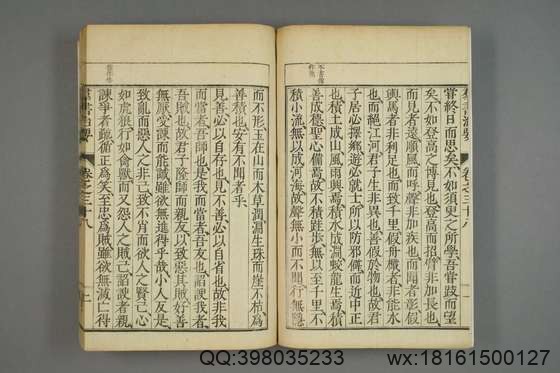 嘗終日而思矣不如須臾之所學吾嘗跂而望
矣不如登高之博見也登高而招臂非加長也
而見者遠順風而呼聲非加疾也而聞者彰假
輿馬者非利足也而致千里假舟檝者非能水
也而絕江河君子生非異也善假於物也故君
子居必擇鄉遊必就士所以防邪僻而近中正
也積土成山風雨興焉積水成淵蛟龍生焉積
善成德聖心備焉故不積跬步無以至千里不
積小流無以成河海故聲無小而不聞行無隱
而不形玉在山而木草潤淵生珠而崖不枯為
善積也安有不聞者乎
見善必以自存也見不善必以自省也故非我
而當者吾師也是我而當者吾友也諂諛我者
吾賊也故君子隆師而親友以致惡其賊好善
無厭受諫而能誡雖欲無進得乎哉小人反是
致亂而惡人之非己致不肖而欲人之賢己心
如虎狼行如禽獸而又怨人之賊己諂諛者親
諫爭者疏脩正為笑至忠為賊雖欲無滅亡得
卷之三十八
QQ:398035233
wx:18161500127